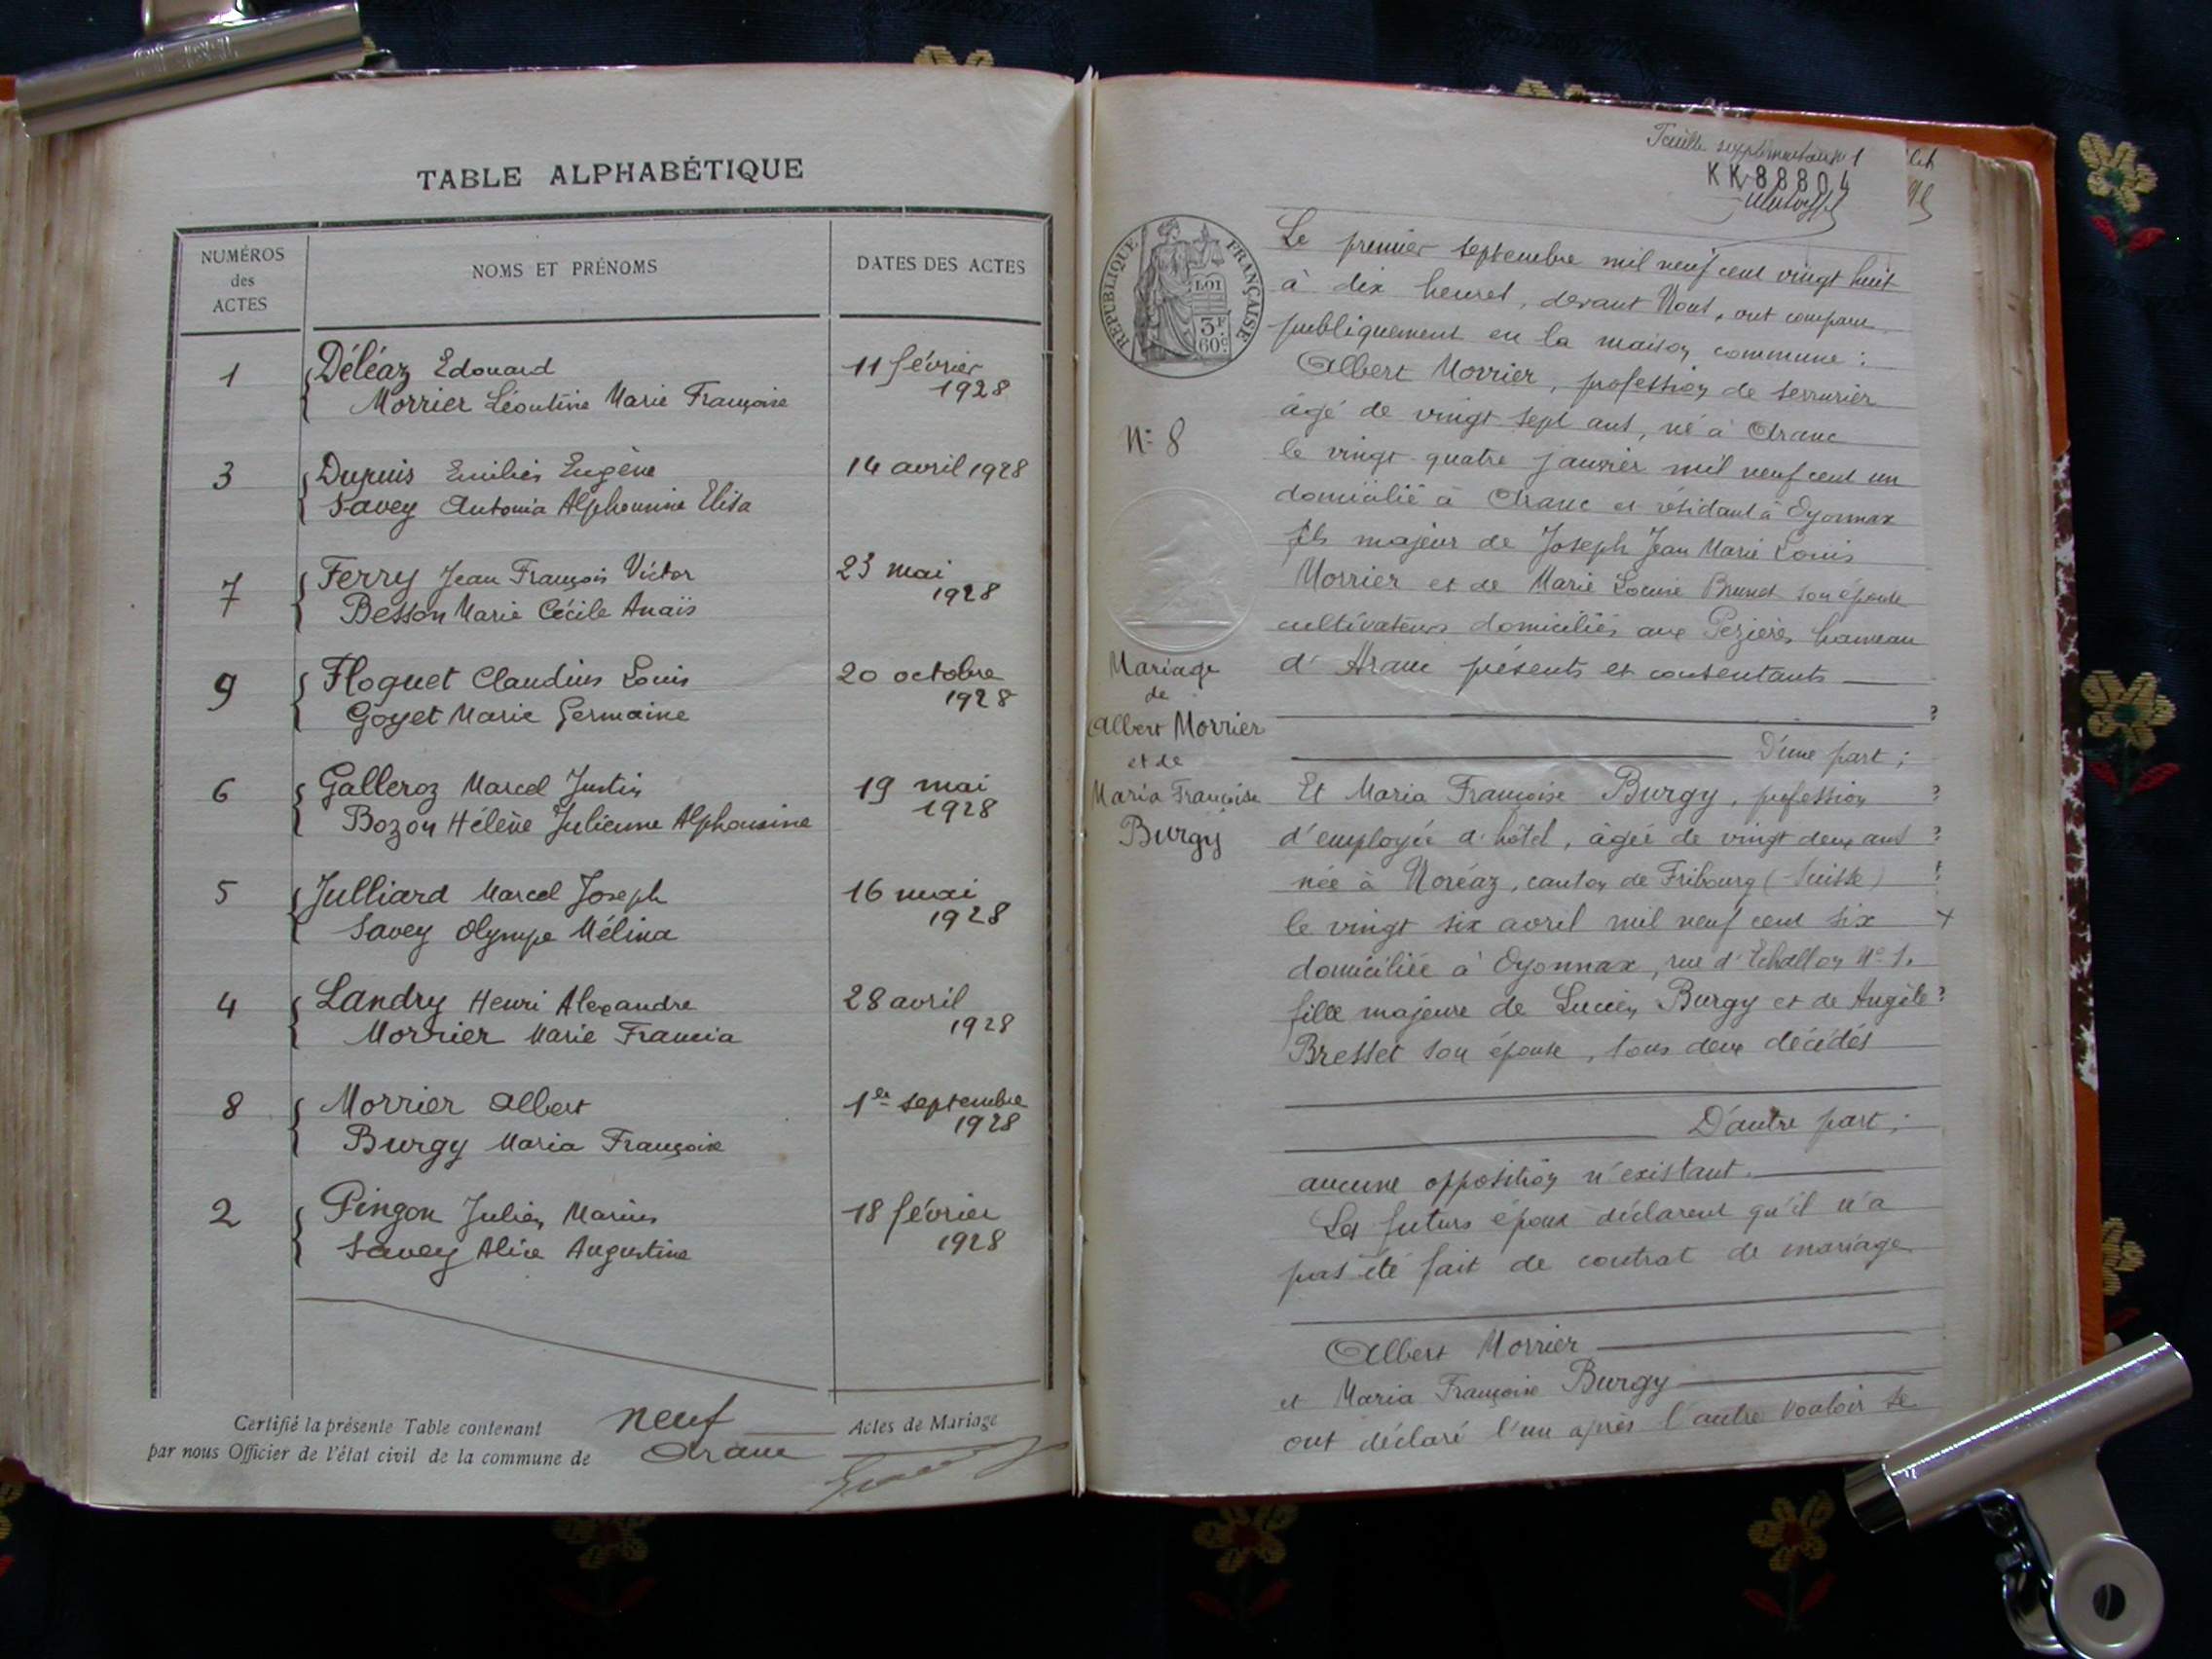 TABLE ALPHABÉTIQUE
NUMÉROS
des
ACTES
NOMS ET PRÉNOMS
DATES DES ACTES
1 Déléaz Edouard 11 février
Morrier Léontine Marie Françoise 1928
3 Dupuis Emilien Eugène 14 avril 1928
Savey Antonia Alphonsine Elisa
7 Ferry Jean François Victor 23 mai
Besson Marie Cécile Anaïs 1928
9 Floquet Claudius Louis 20 octobre
Goyet Marie Germaine 1928
6 Galleroz Marcel Justin 19 mai
Bozon Hélène Julienne Alphonsine 1928
5 Julliard Marcel Joseph 16 mai
Savey Olympe Mélina 1928
4 Landry Henri Alexandre 28 avril
Morrier Marie Francia 1928
8 Morrier Albert 1er septembre
Burgy Maria Françoise 1928
2 Pingon Julien Marius 18 février
Savey Alice Augustine 1928
Certifié la présente Table contenant neuf Actes de Mariage
par nous Officier de l'état civil de la commune de Aranc
Feuille supplémentaire 1
KK 88804
RÉPUBLIQUE FRANÇAISE
LOI
3F
60c.
N° 8
Mariage
de
Albert Morrier
et de
Maria Françoise
Burgy
Le premier septembre mil neuf cent vingt huit
à dix heures, devant Nous, ont comparu
publiquement en la maison commune :
Albert Morrier, profession de serrurier
âgé de vingt sept ans, né à Aranc
le vingt quatre janvier mil neuf cent un
domicilié à Aranc et résidant à Oyonnax
fils majeur de Joseph Jean Marie Louis
Morrier et de Marie Louise Brunet son épouse
cultivateurs domiciliés aux Pezières hameau
d'Aranc présents et consentants
D'une part ;
Et Maria Françoise Burgy, profession
d'employée d'hôtel, âgée de vingt deux ans
née à Noréaz, canton de Fribourg (Suisse)
le vingt six avril mil neuf cent six
domiciliée à Oyonnax, rue d'Echallon N° 1.
fille majeure de Lucien Burgy et de Angèle
Bresset son épouse, tous deux décédés
D'autre part ;
aucune opposition n'existant.
Les futurs époux déclarent qu'il n'a
pas été fait de contrat de mariage
Albert Morrier
et Maria Françoise Burgy
ont déclaré l'un après l'autre vouloir se